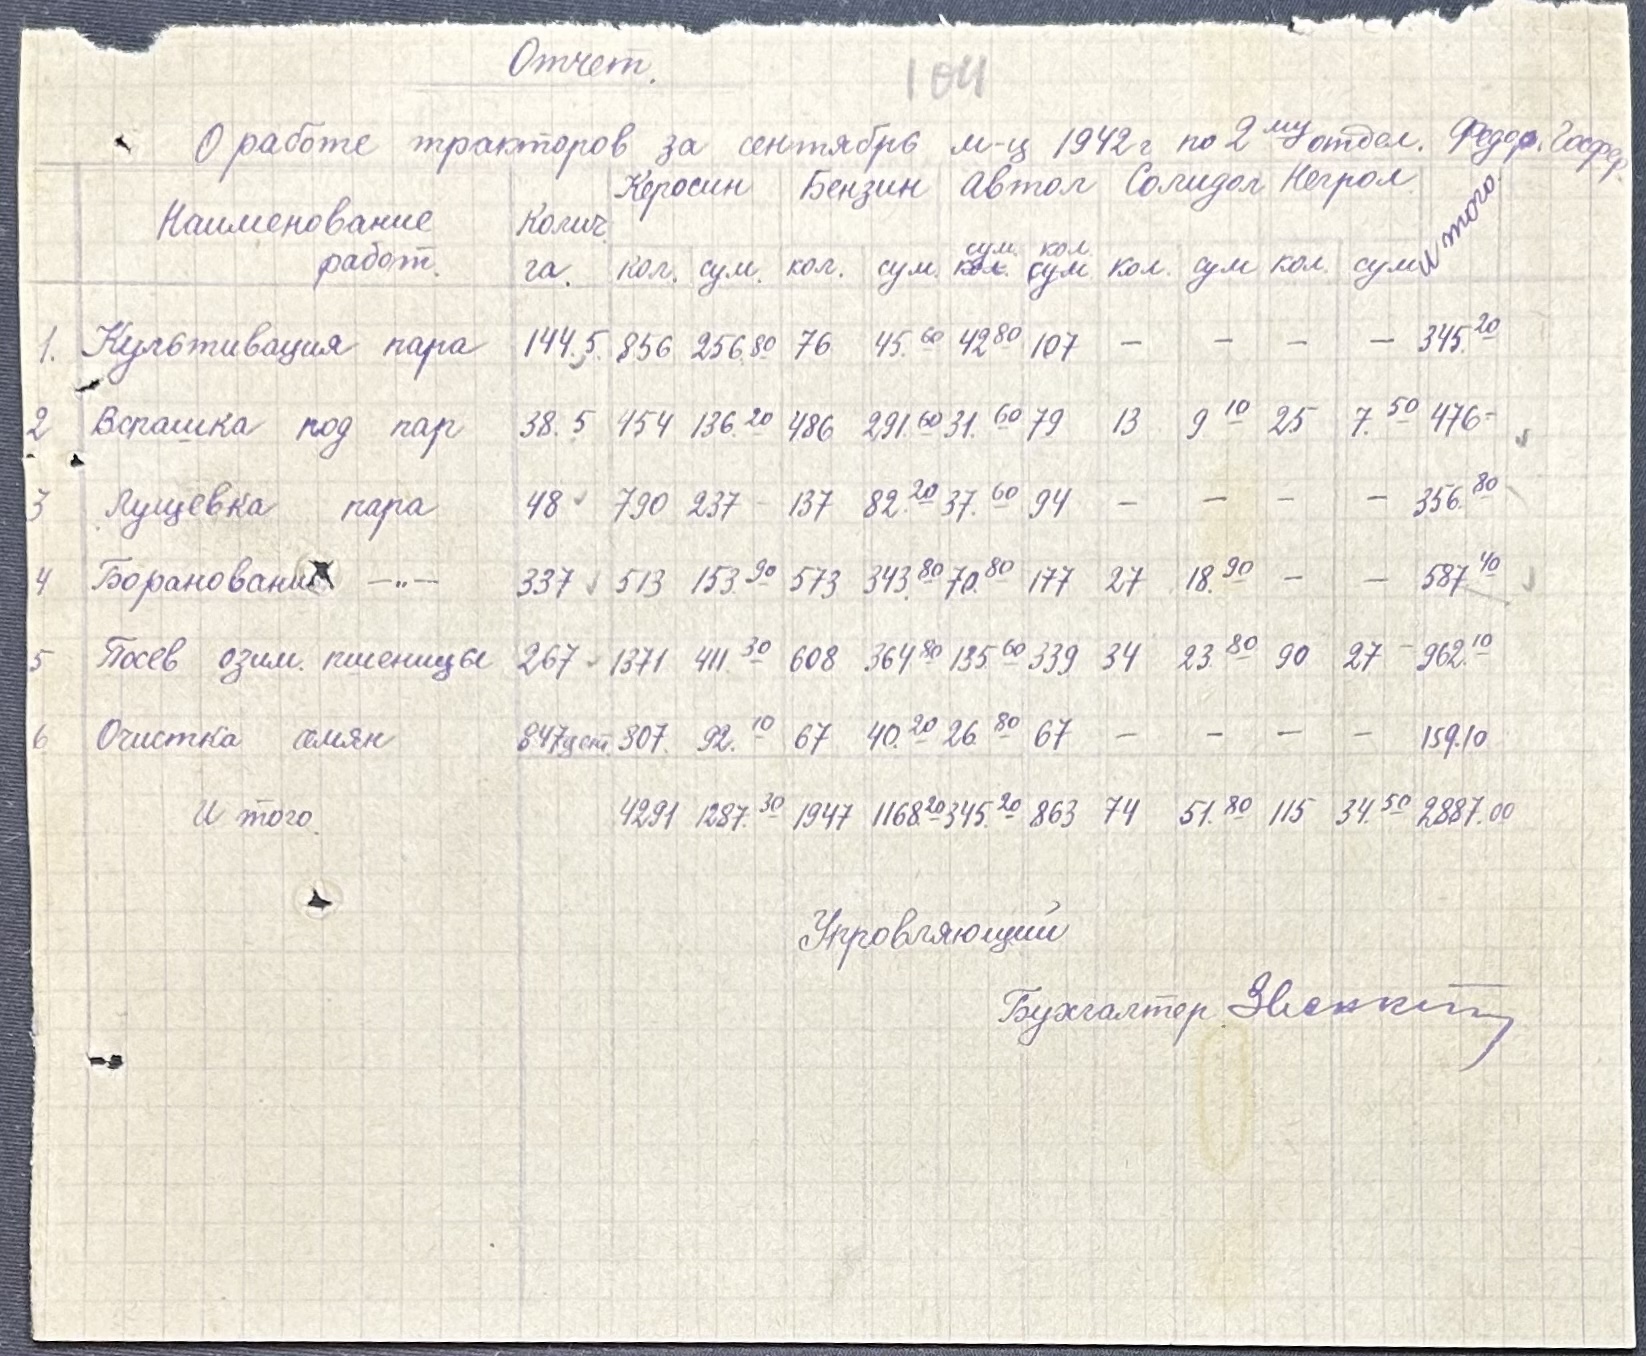 Отчет.
104
О работе тракторов за сентябрь м-ц 1942 г по 2му отдел. Федор. Госфер.
Наименование работ. Колич. га. Керосин Бензин Автол Солидол Негрол Итого.
кол. сум. кол. сум. сум. кол. кол. сум кол. сум
1. Культивация пара 144.5. 856 256.80 76 45.60 42 80 107 – – – – 345.20
2 Вспашка под пар 38.5 454 136.20 486 291.60 31.60 79 13 9 10 25 7.50 476-
3 Лущевка пара 48 790 237 – 137 82.20 37.60 94 – – – – 356.80
4 Boрановани –„– 337 513 153.90 573 343.80 70.80 177 27 18.90 – – 587 40
5 Посев озим. пшеницы 267 1371 411.30 608 364 80 135.60 339 34 23.80 90 27 – 962.10
6 Очистка семян 847цент. 307. 92.10 67 40.20 26.80 67 – – – – 159.10
Итого. 4291 1287.30 1947 1168.20 345.20 863 74 51.80 115 34.50 2887.00
Упровляющий
Бухгалтер